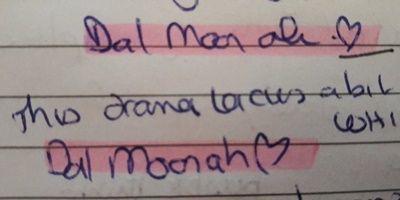 Dal Moon ah ♡
This drama lacks a bit
WHI
Dal Moonah ♡